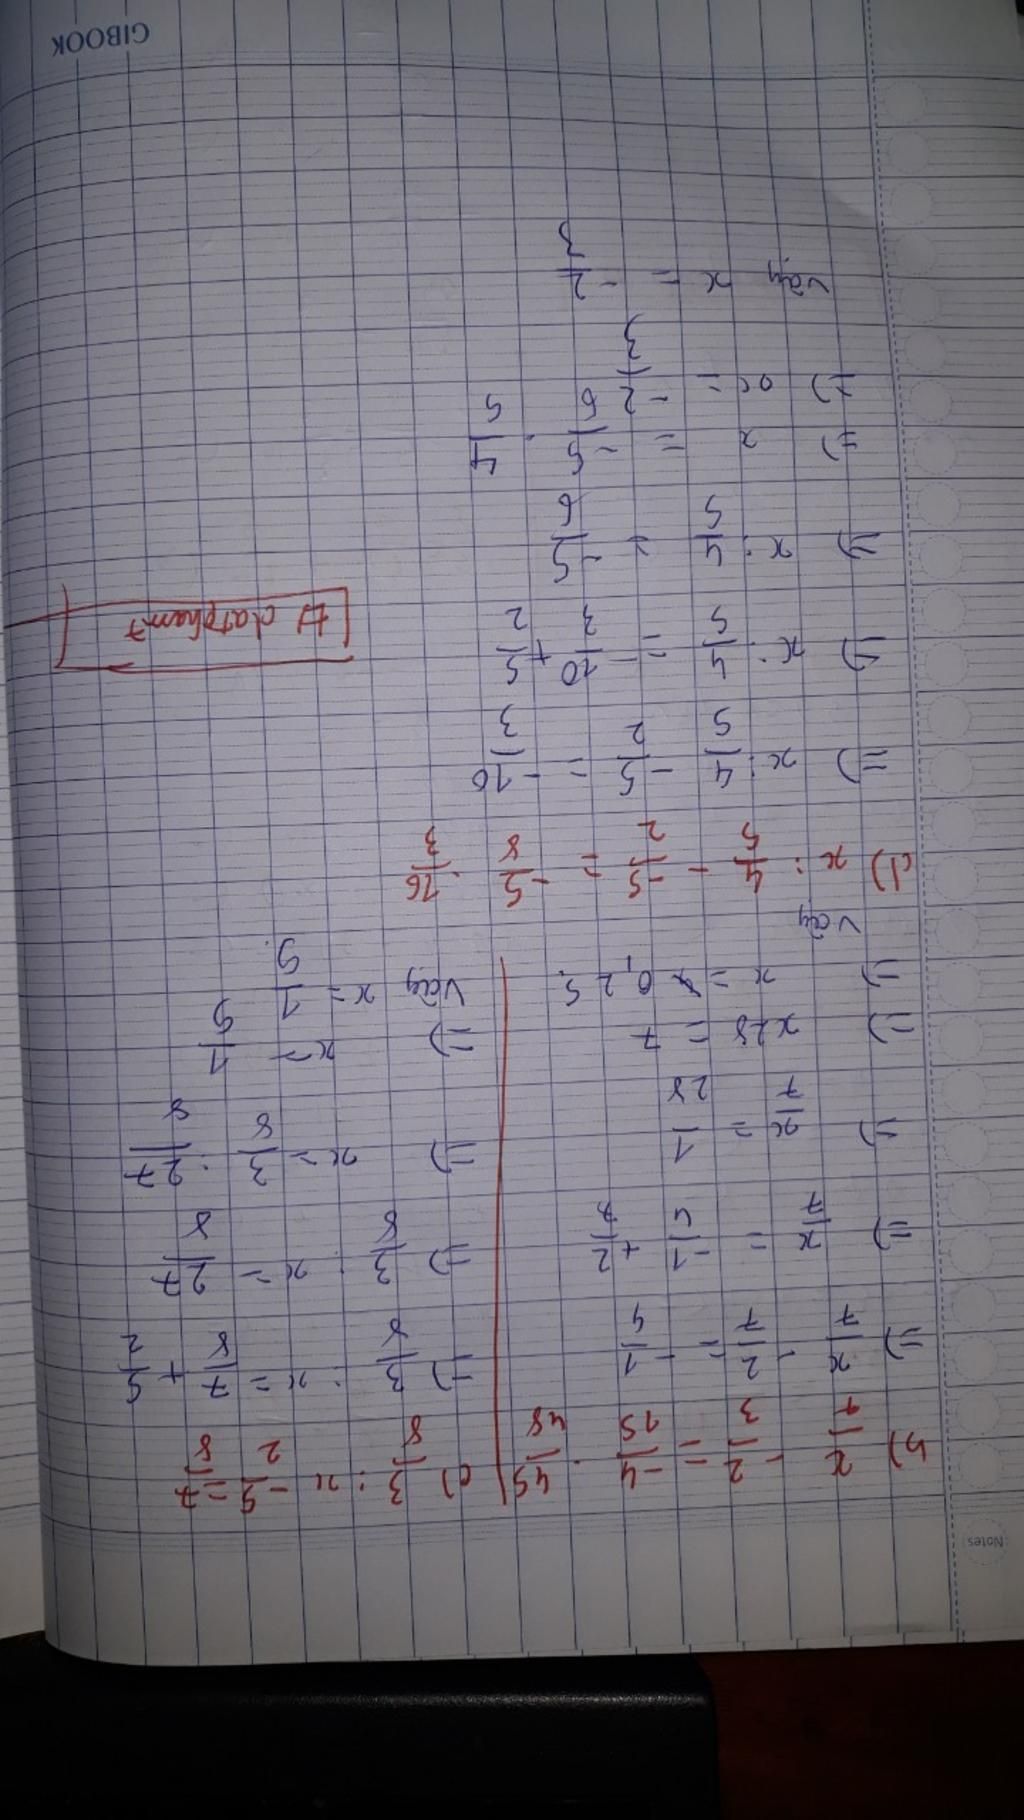 Notes
b) x/7 - 2/3 = -4/15 . 45/48
=) x/7 - 2/7 = -1/4
=) x/7 = -1/4 + 2/7
=) x/7 = 1/28
=) x28 = 7
=) x = 0,25.
Vậy
c) 3/8 : x - 5/2 = 7/8
=) 3/8 : x = 7/8 + 5/2
=) 3/8 : x = 27/8
=) x = 3/8 : 27/8
=) x = 1/9
Vậy x = 1/9.
d) x : 4/5 - -5/2 = -5/8 . 16/3
=) x : 4/5 - 5/2 = -10/3
=) x : 4/5 = -10/3 + 5/2
=) x : 4/5 = -5/6
=) x = -5/6 . 4/5
=) x = -2/3
Vậy x = -2/3
datpham7
GIBOOK